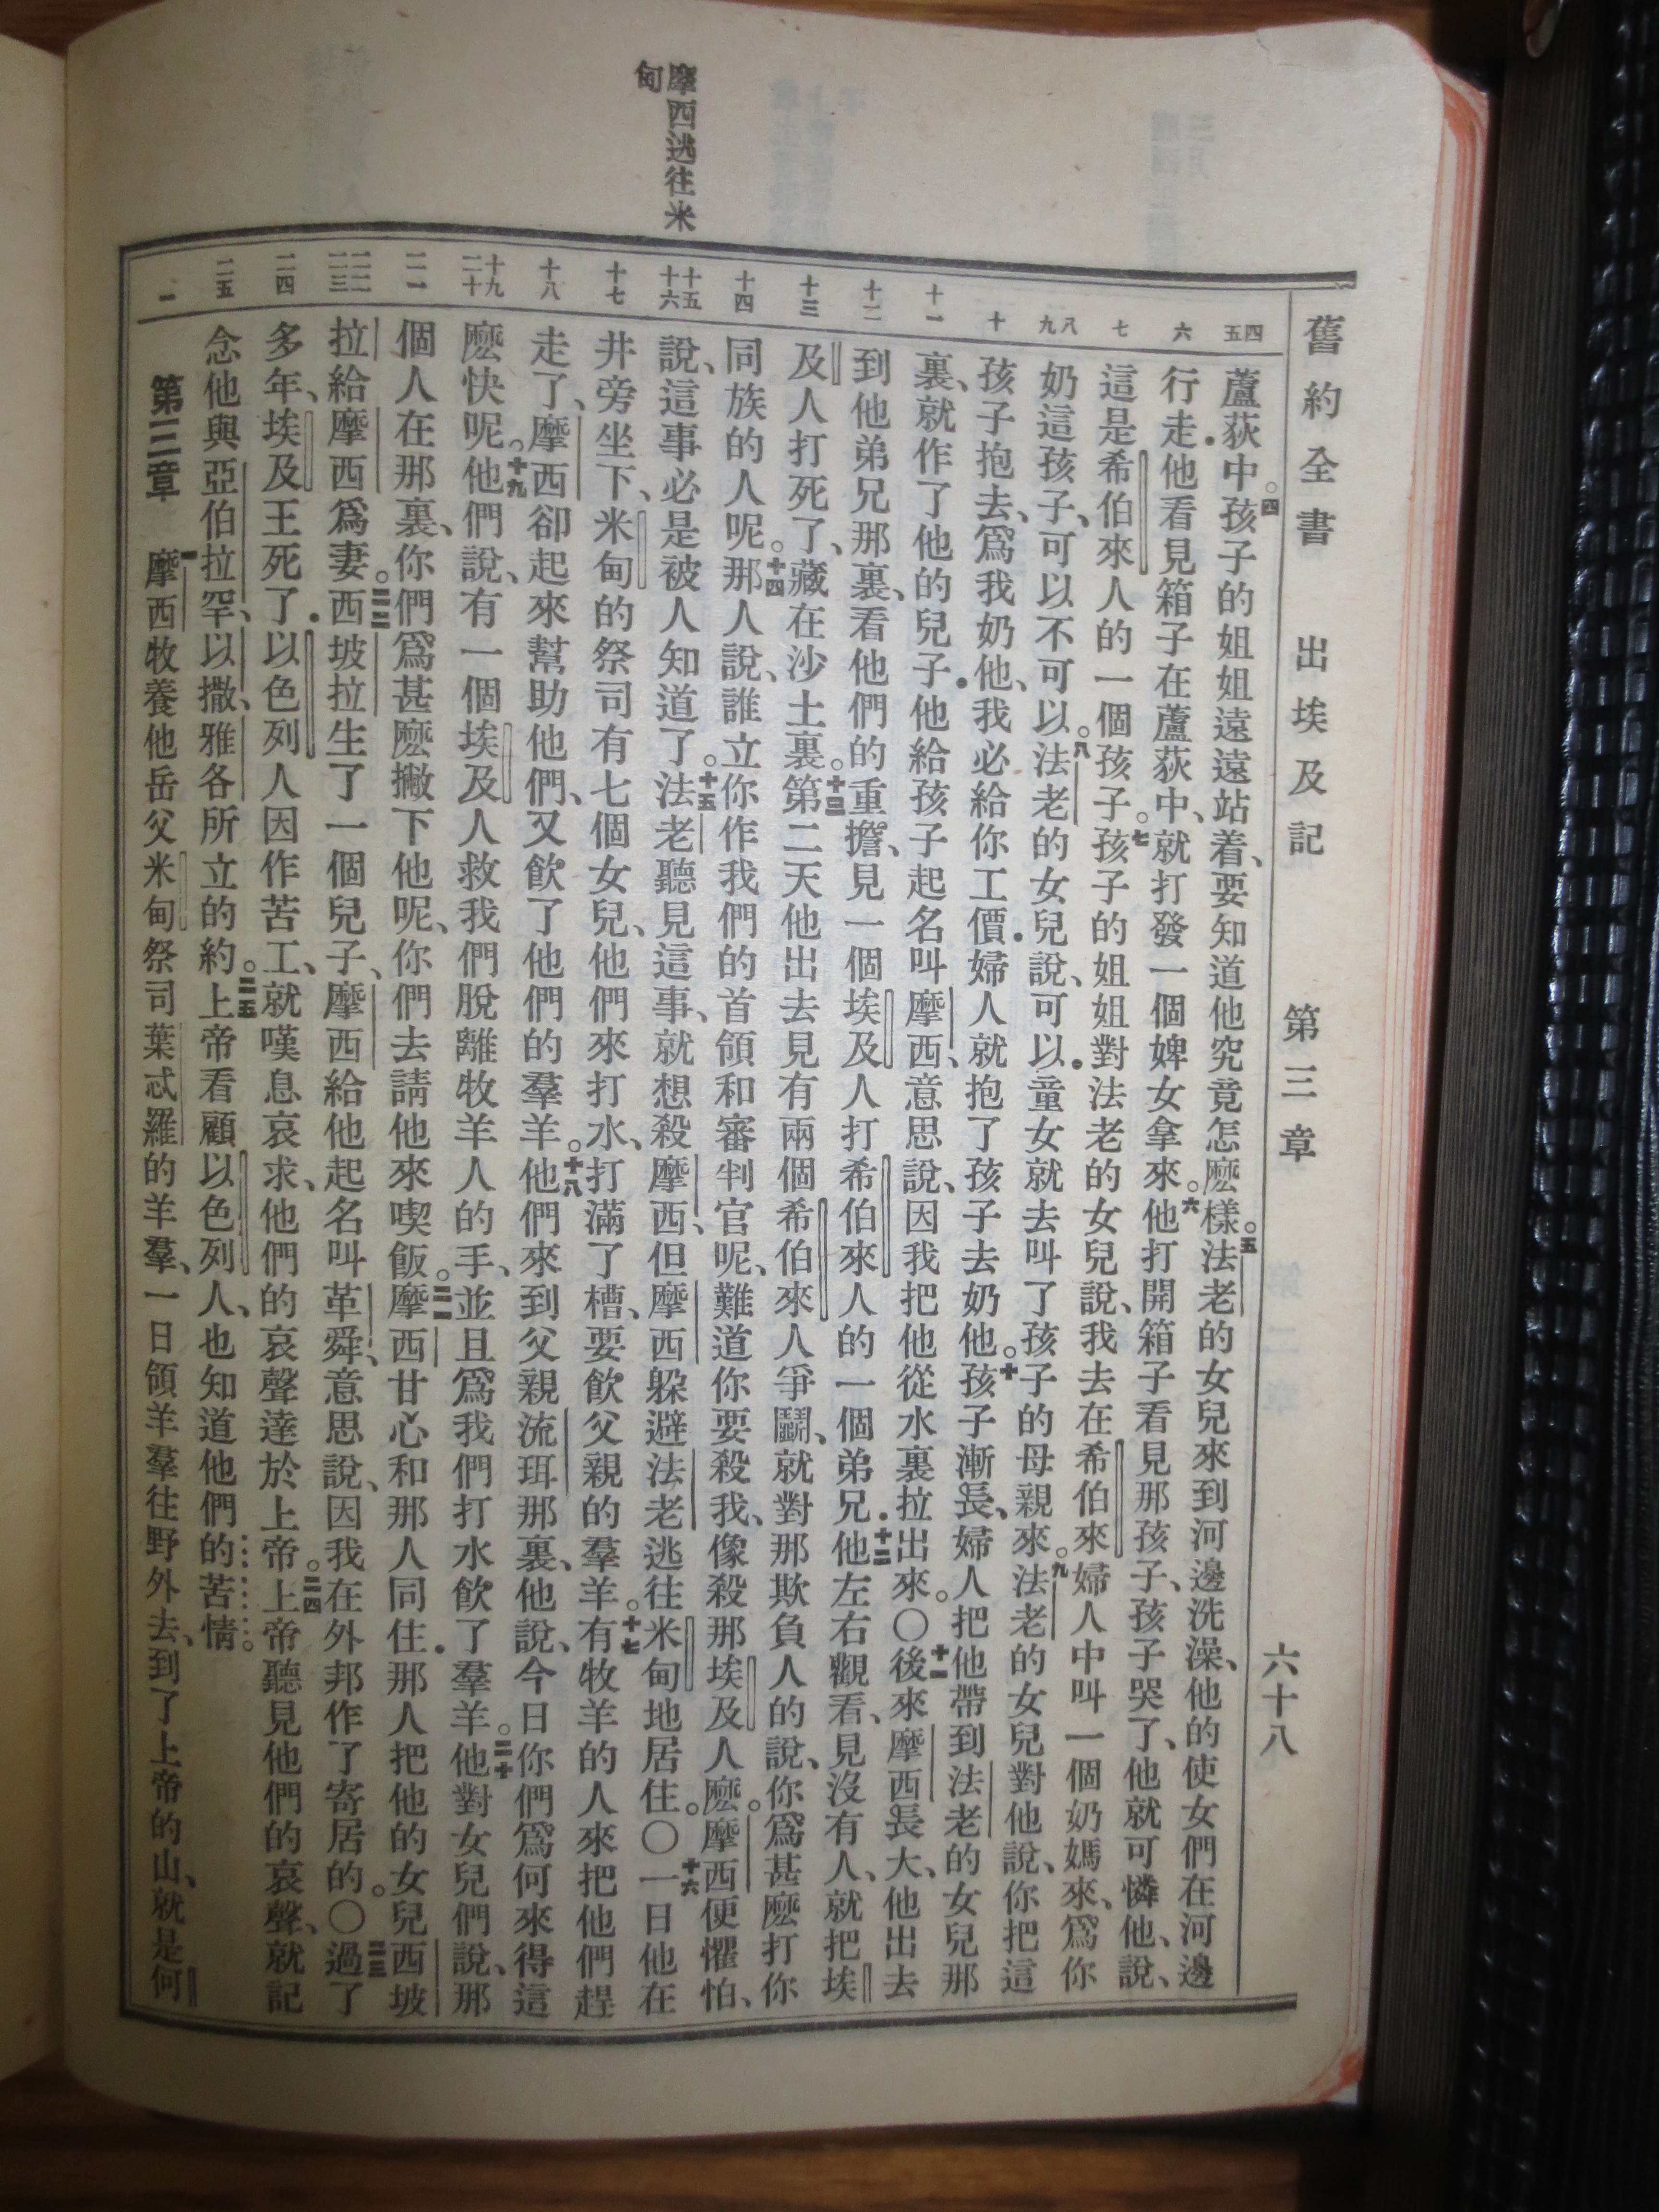 舊約全書 出埃及記 第三章 六十八
摩西逃往米
甸
四
五
六
七
八
九
十
十一
十二
十三
十四
十五
十六
十七
十八
十九
二十
二一
二二
二三
二四
二五
一
蘆荻中。四孩子的姐姐遠遠站着、要知道他究竟怎麽樣。五法老的女兒來到河邊洗澡、他的使女們在河邊
行走．他看見箱子在蘆荻中、就打發一個婢女拿來。六他打開箱子看見那孩子、孩子哭了、他就可憐他、說、
這是希伯來人的一個孩子。七孩子的姐姐對法老的女兒說、我去在希伯來婦人中叫一個奶媽來、爲你
奶這孩子、可以不可以。八法老的女兒說、可以．童女就去叫了孩子的母親來。九法老的女兒對他說、你把這
孩子抱去、爲我奶他、我必給你工價．婦人就抱了孩子去奶他。十孩子漸長、婦人把他帶到法老的女兒那
裏、就作了他的兒子．他給孩子起名叫摩西、意思說、因我把他從水裏拉出來。〇十一後來摩西長大、他出去
到他弟兄那裏、看他們的重擔、見一個埃及人打希伯來人的一個弟兄．十二他左右觀看、見沒有人、就把埃
及人打死了、藏在沙土裏。十三第二天他出去見有兩個希伯來人爭鬭、就對那欺負人的說、你爲甚麽打你
同族的人呢。十四那人說、誰立你作我們的首領和審判官呢、難道你要殺我、像殺那埃及人麽。摩西便懼怕、
說、這事必是被人知道了。十五法老聽見這事、就想殺摩西、但摩西躱避法老逃往米甸地居住。〇十六一日他在
井旁坐下、米甸的祭司有七個女兒、他們來打水、打滿了槽、要飲父親的羣羊。十七有牧羊的人來把他們趕
走了、摩西卻起來幫助他們、又飲了他們的羣羊。十八他們來到父親流珥那裏、他說、今日你們爲何來得這
麽快呢。十九他們說、有一個埃及人救我們脫離牧羊人的手、並且爲我們打水飲了羣羊。二十他對女兒們說、那
個人在那裏、你們爲甚麽撇下他呢、你們去請他來喫飯。二一摩西甘心和那人同住．那人把他的女兒西坡
拉給摩西爲妻。二二西坡拉生了一個兒子、摩西給他起名叫革舜、意思說、因我在外邦作了寄居的。〇二三過了
多年、埃及王死了．以色列人因作苦工、就嘆息哀求、他們的哀聲達於上帝。二四上帝聽見他們的哀聲、就記
念他與亞伯拉罕、以撒、雅各所立的約。二五上帝看顧以色列人、也知道他們的苦情。
第三章 一摩西牧養他岳父米甸祭司葉忒羅的羊羣、一日領羊羣往野外去、到了上帝的山、就是何